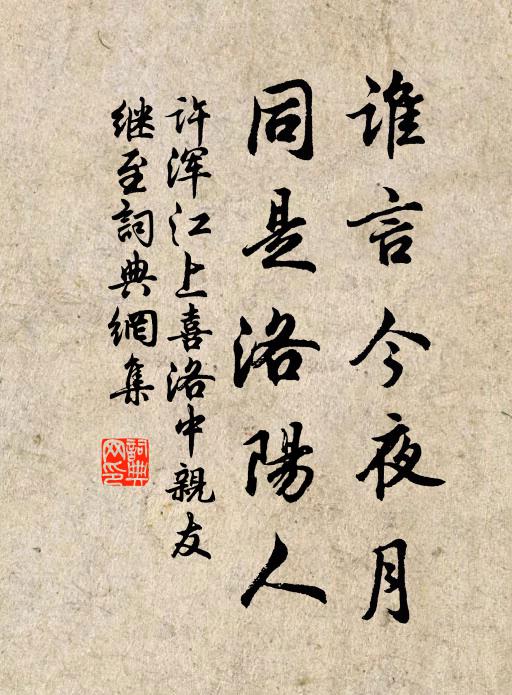 谁言今夜月
同是洛陽人
许浑江上喜洛中親友
继至詞典網集
詞典
网印